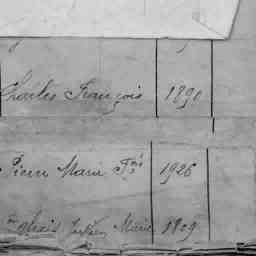 Charles François 1890
Pierre Marie Fçois 1926
Marie 1809